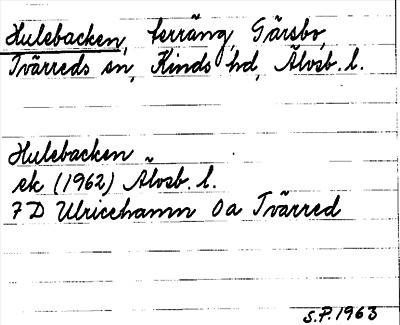 Hulebacken, terräng, Gärsbo,
Tvärreds sn, Kinds hd, Älvsb. l.
Hulebacken
ek (1962) Älvsb. l.
7 D Ulricehamn 0a Tvärred
S.P. 1963